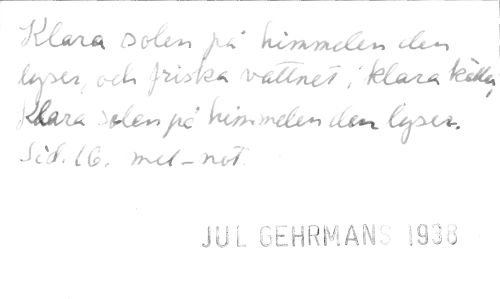 Klara solen på himmelen den
lyser, och friska vattnet i klara källa,
Klara solen på himmelen den lyser.
Sid. 16. mel-not.
JUL GEHRMANS 1938